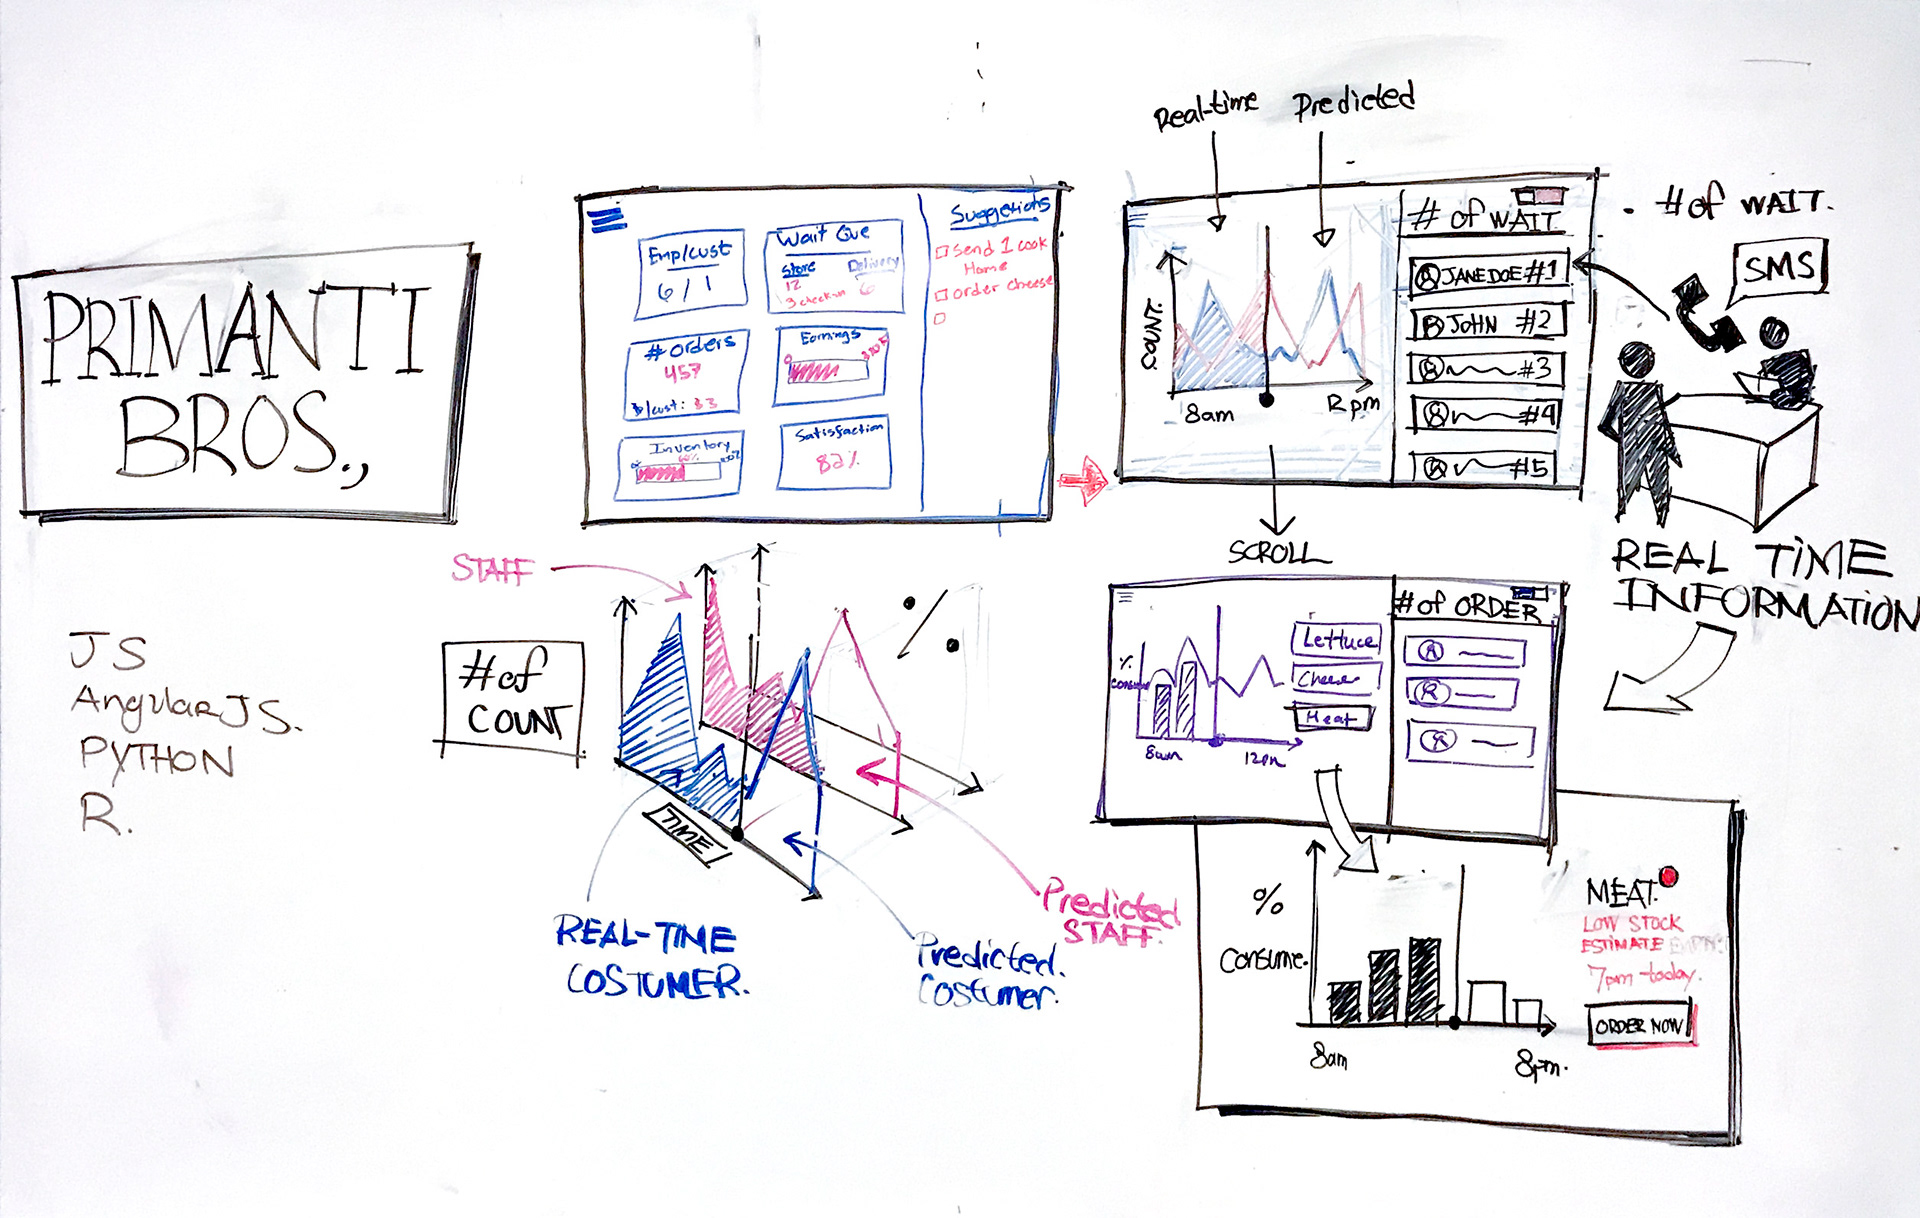 PRIMANTI
BROS.,
JS
AngularJS.
PYTHON
R.
Emp/cust
6 / 1
Wait Que
Store
12
3 check-in
Delivery
6
# Orders
457
$/cust: $3
Earnings
0
Inventory
60%
Satisfaction
82%
Suggestions
Send 1 cook
Home
order cheese
Real-time
Predicted
COUNT.
8am
12pm
# of WAIT
A JANE DOE #1
B JOHN #2
#3
#4
#5
. # of WAIT.
SMS
SCROLL
REAL TIME
INFORMATION
STAFF
# of
COUNT
%
TIME
REAL-TIME
COSTUMER.
Predicted.
Costumer.
Predicted
STAFF.
%
consume
8am
12pm
Lettuce
Cheese
Meat
# of ORDER
A
R
%
Consume.
8am
8pm.
MEAT.
LOW STOCK
ESTIMATE EMPTY:
7pm today.
ORDER NOW